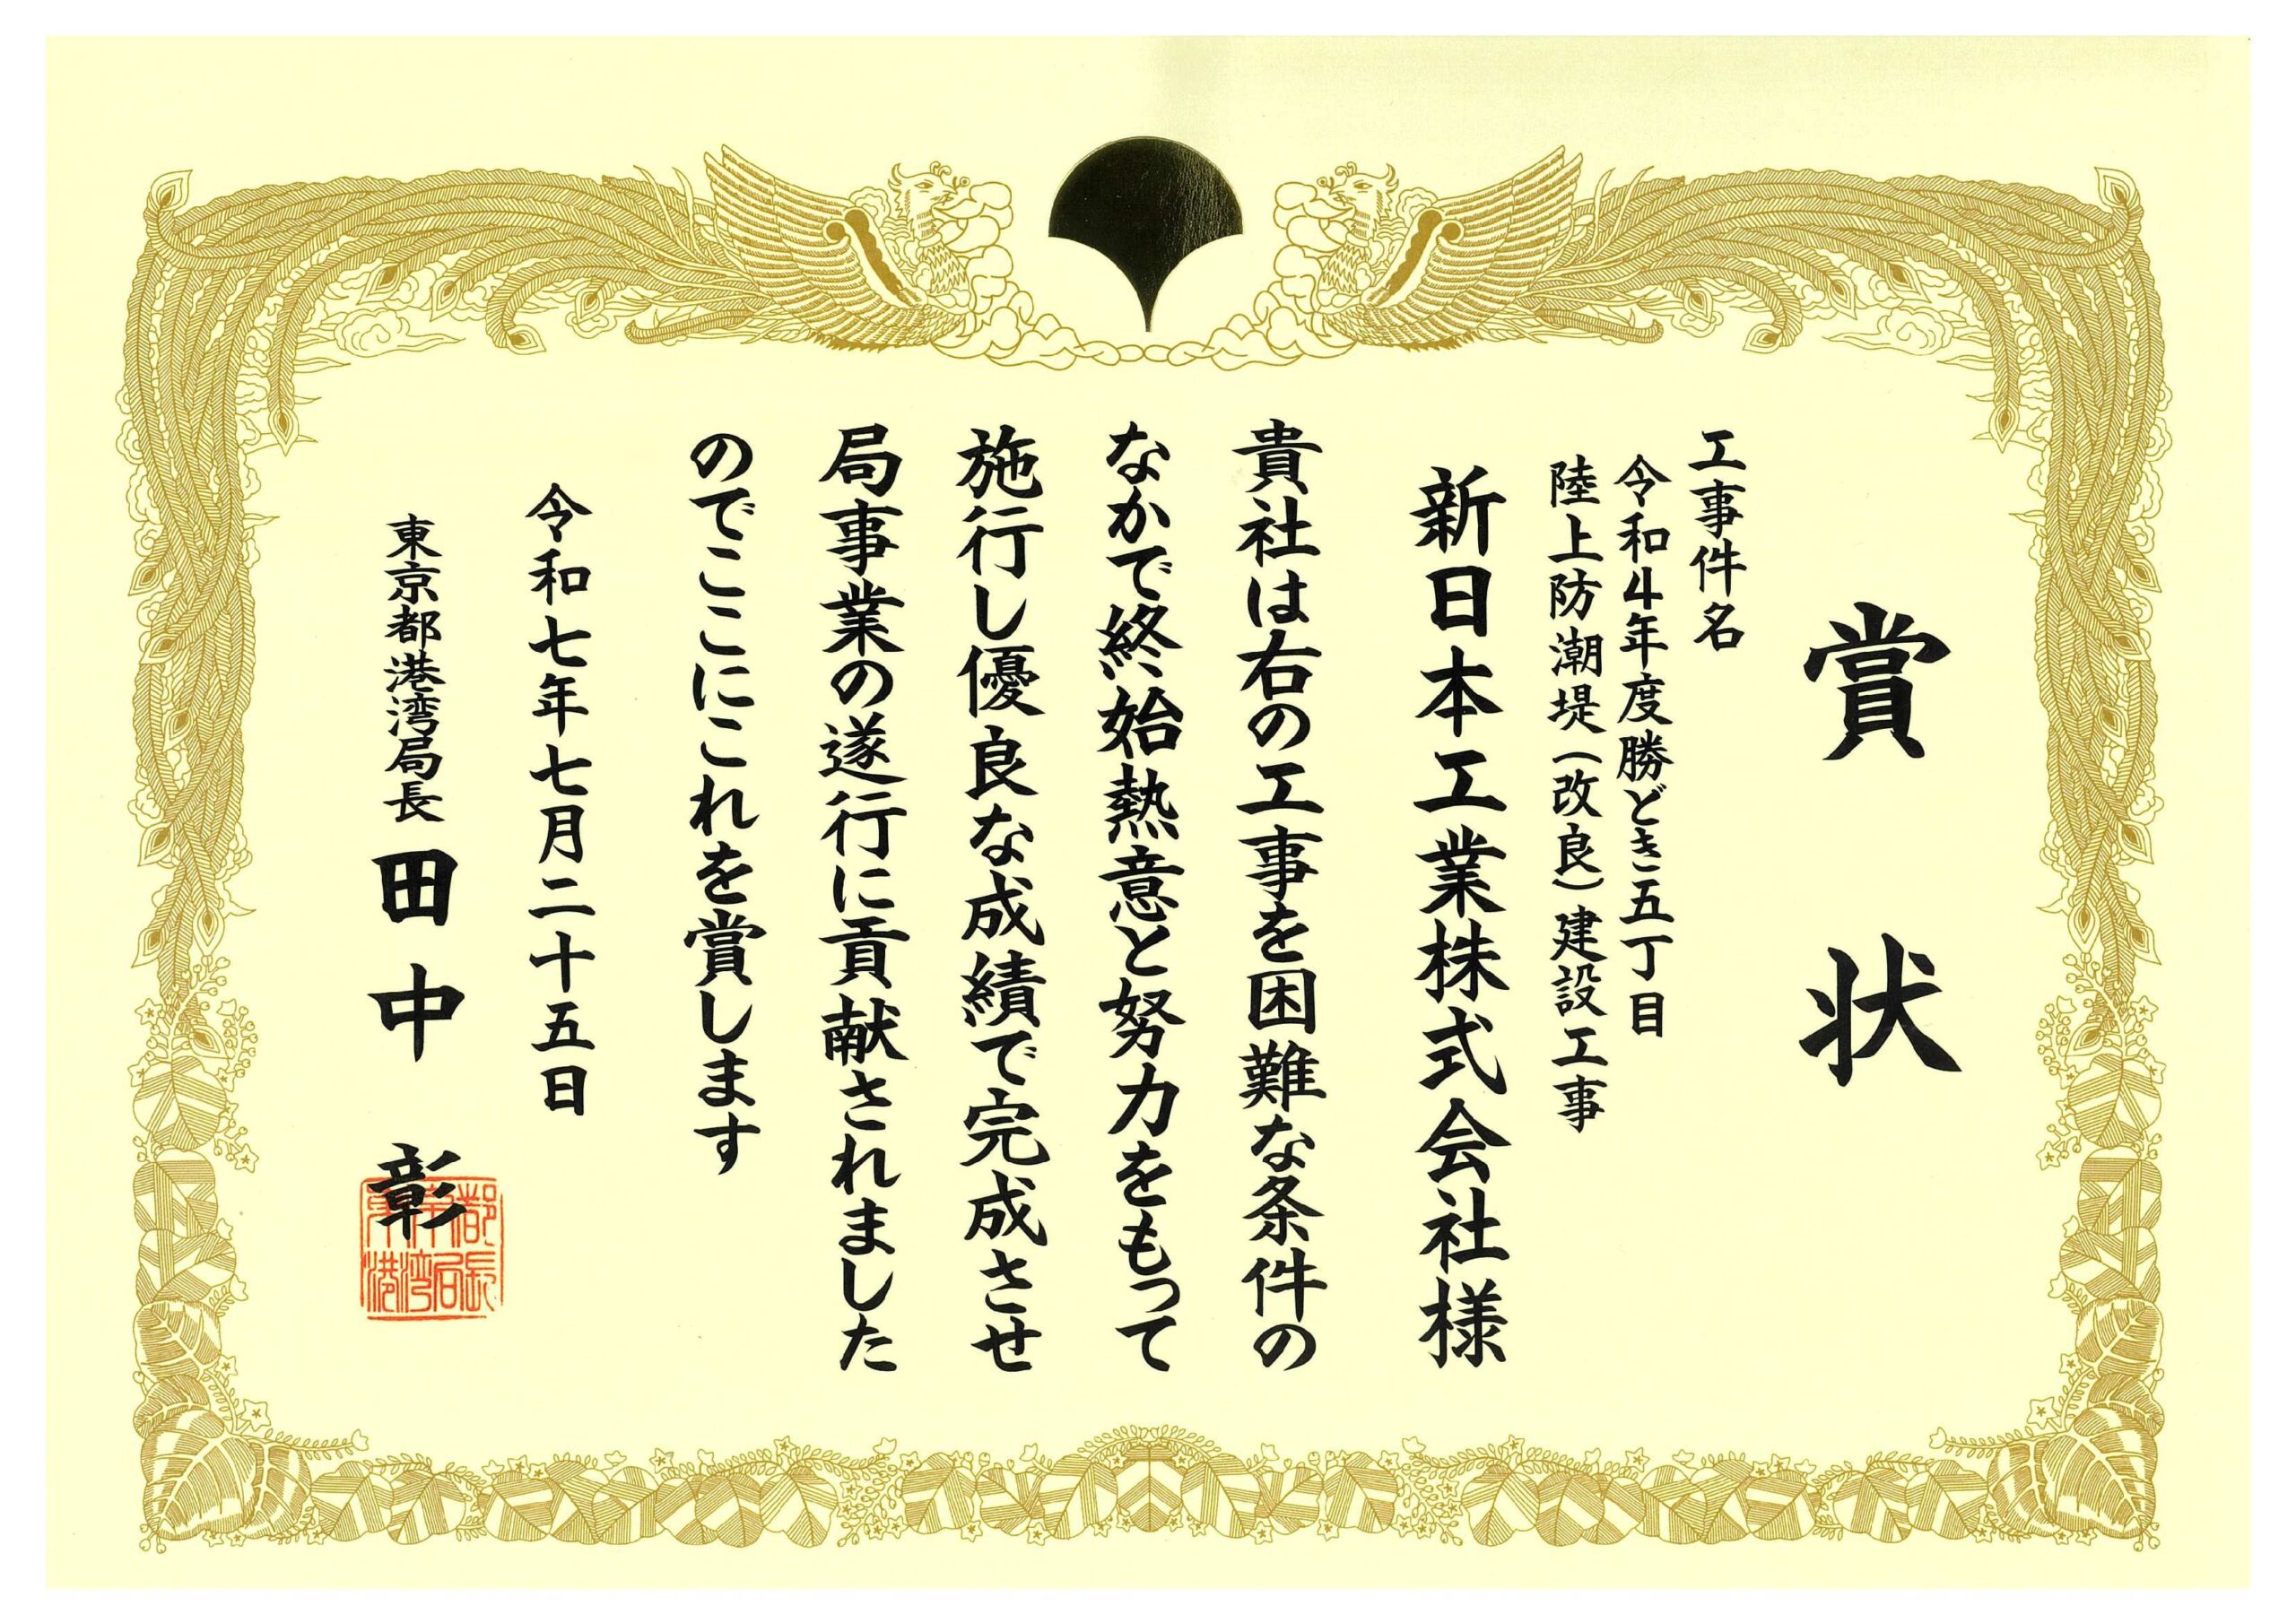 賞状
工事件名
令和4年度勝どき五丁目
陸上防潮堤(改良)建設工事
新日本工業株式会社様
貴社は右の工事を困難な条件の
なかで終始熱意と努力をもって
施行し優良な成績で完成させ
局事業の遂行に貢献されました
のでここにこれを賞します
令和七年七月二十五日
東京都港湾局長 田中 彰